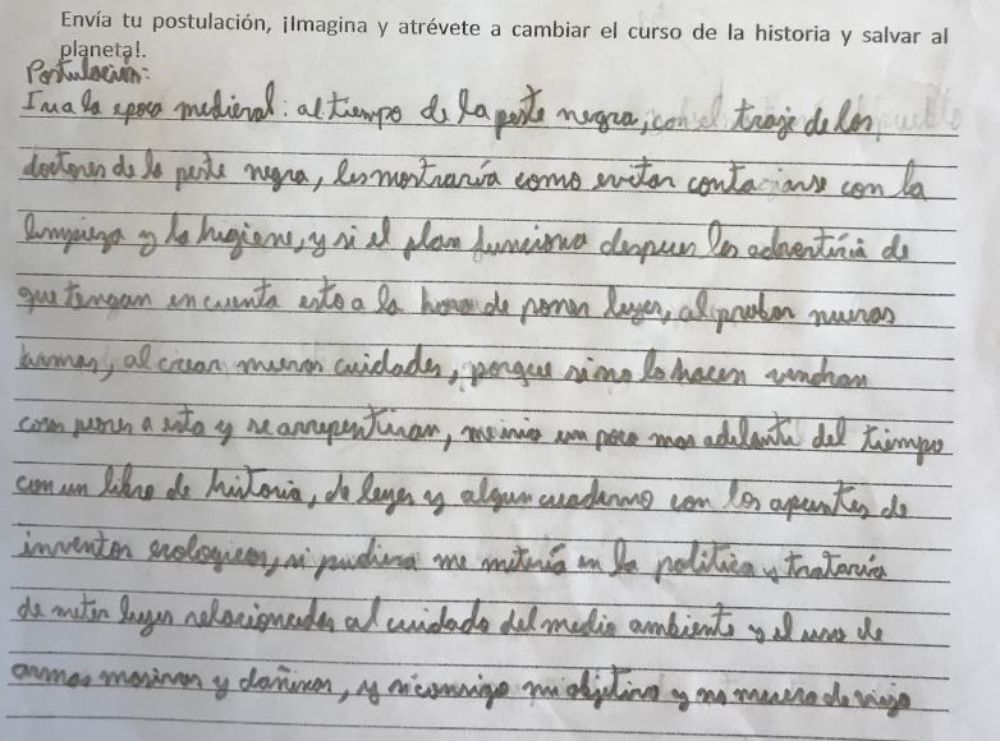 Envía tu postulación, ¡Imagina y atrévete a cambiar el curso de la historia y salvar al
planeta!.
Postulación:
Iria a la epoca medieval: al tiempo de la peste negra, con el traje de los
doctores de la peste negra, les mostraría como evitar contagiarse con la
limpieza y la higiene, y si el plan funciona despues les advertiria de
que tengan en cuenta esto a la hora de poner leyes, al probar nuevas
armas, al crear nuevas cuidades, porque si no lo hacen vendran
cosas peores a esta y se arrepentiran, me iria un poco mas adelante del tiempo
con un libro de historia, de leyes y algun cuaderno con los apuntes de
inventos ecologicos, si pudiera me metería en la politica y trataría
de meter leyes relacionadas al cuidado del medio ambiente y el uso de
armas masivas y dañinas, y si consigo mi objetivo y no muero de viejo